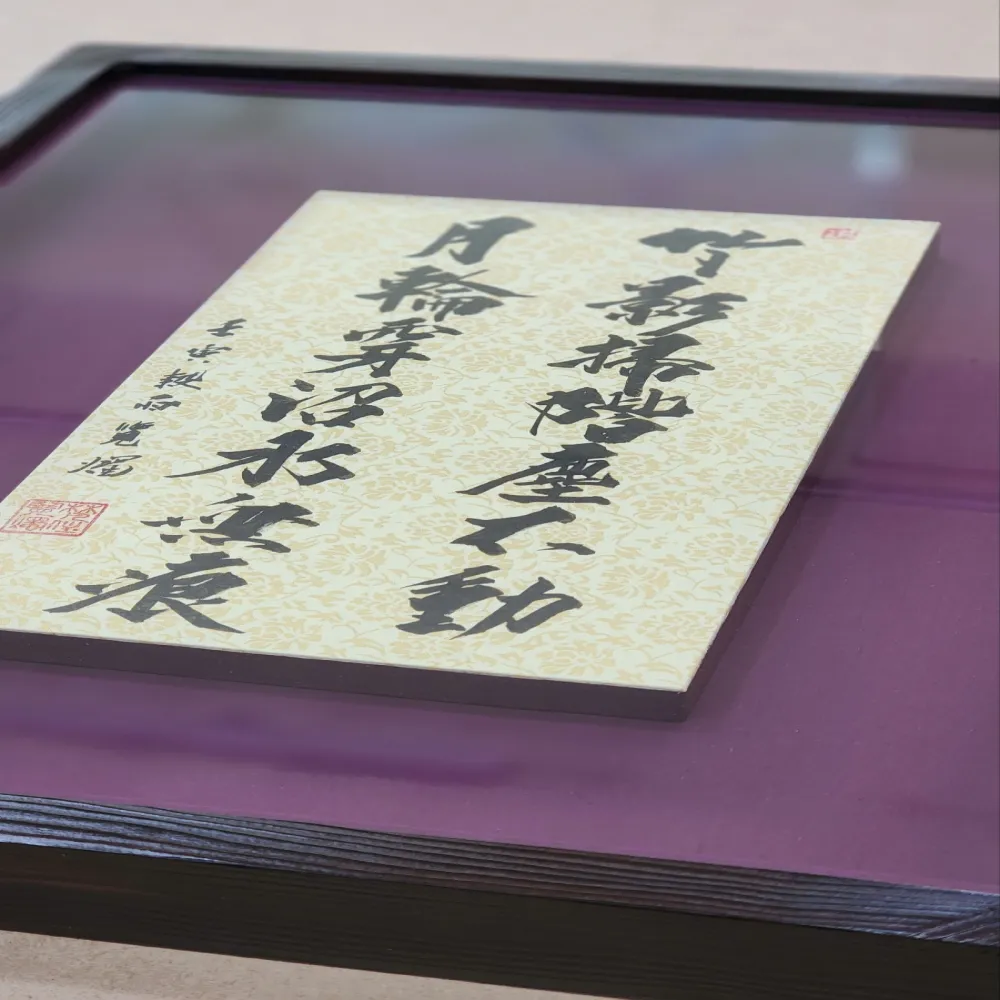 竹影掃階塵不動
月輪穿沼水無痕
壬寅